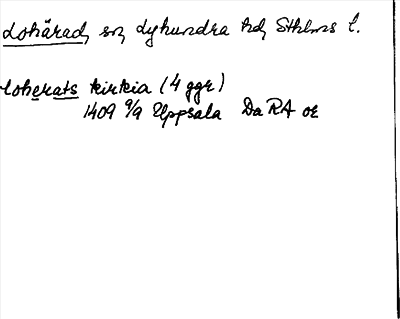 Lohärad, sn, Lyhundra hd, Sthlms l.
loherats kirkia (4 ggr)
1409 9/9 Uppsala DaRA or